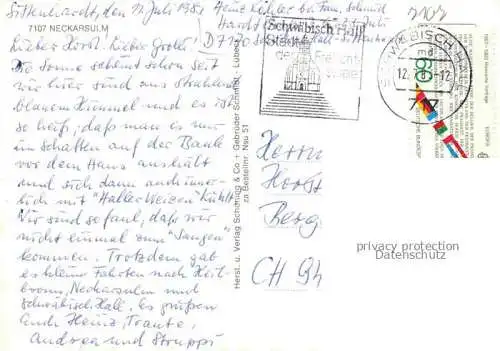 Sittenhardt, den 12. Juli 1982
7107 NECKARSULM
Lieber Horst, Liebe Grete!
Die Sonne scheint schon seit
wir hier sind aus strahlend
blauem Himmel und es ist
so heiß, daß man es nur
im Schatten auf der Bank
vor dem Haus aushält
und sich dann auch inner-
lich mit "Haller-Weizen" kühlt.
Wir sind so faul, daß wir
nicht einmal zum "Saugen"
kommen. Trotzdem gab
es kleine Fahrten nach Heil-
bronn, Neckarsulm und
Schwäbisch Hall. Es grüßen
Euch Heinz, Traute,
Andrea und Struppi
Heinz Köhler bei Fam. Schmidt
D 7170 Schwäbisch Hall-Sittenhardt
Herst. u. Verlag Schöning & Co + Gebrüder Schmidt, Lübeck
zu Bestellnr. Nsu 51
Schwäbisch Hall
Stadt
der Freilicht-
spiele
SCHWÄBISCH HALL
md
12
60
DEUTSCHE BUNDESPOST
Herrn
Horst
Berg
CH 94
privacy protection
Datenschutz